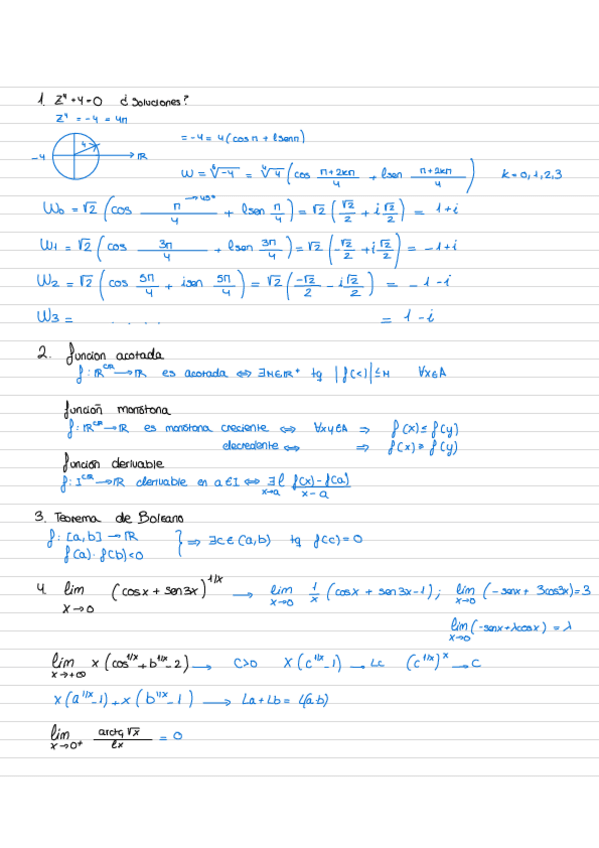 1. Z⁴+4=0 ¿Soluciones?
Z⁴ = -4 = 4π
= -4 = 4(cosπ + isenπ)
4
-4 → IR
W = ⁴√-4 = ⁴√4 (cos (π+2kπ)/4 + isen (π+2kπ)/4) k=0,1,2,3
W₀ = √2 (cos π/4 →45° + isen π/4) = √2 (√2/2 + i√2/2) = 1+i
W₁ = √2 (cos 3π/4 + isen 3π/4) = √2 (-√2/2 + i√2/2) = -1+i
W₂ = √2 (cos 5π/4 + isen 5π/4) = √2 (-√2/2 - i√2/2) = -1-i
W₃ = . . . . . . = 1-i
2. función acotada
f: IR → IR es acotada ⇔ ∃M∈IR⁺ tq |f(x)| ≤ M ∀x∈A
función monótona
f: IR → IR es monótona creciente ⇔ ∀xy∈A ⇒ f(x) ≤ f(y)
decrediente ⇔ ⇒ f(x) ≥ f(y)
función derivable
f: I → IR derivable en a∈I ⇔ ∃ l x→a (f(x)-f(a))/(x-a)
3. Teorema de Bolzano
f: [a,b] → IR
f(a)·f(b)<0 } ⇒ ∃c∈(a,b) tq f(c)=0
4. lim x→0 (cosx + sen3x)^1/x → lim x→0 1/x (cosx + sen3x-1); lim x→0 (-senx + 3cos3x)=3
lim x→0 (-senx+λcosx) = λ
lim x→+∞ x(cos^1/x + b^1/x - 2) → c>0 x(c^1/x - 1) → Lc (c^1/x)^x → c
x(a^1/x - 1) + x(b^1/x - 1) → La + Lb = L(a.b)
lim x→0⁺ arctg √x / Lx = 0